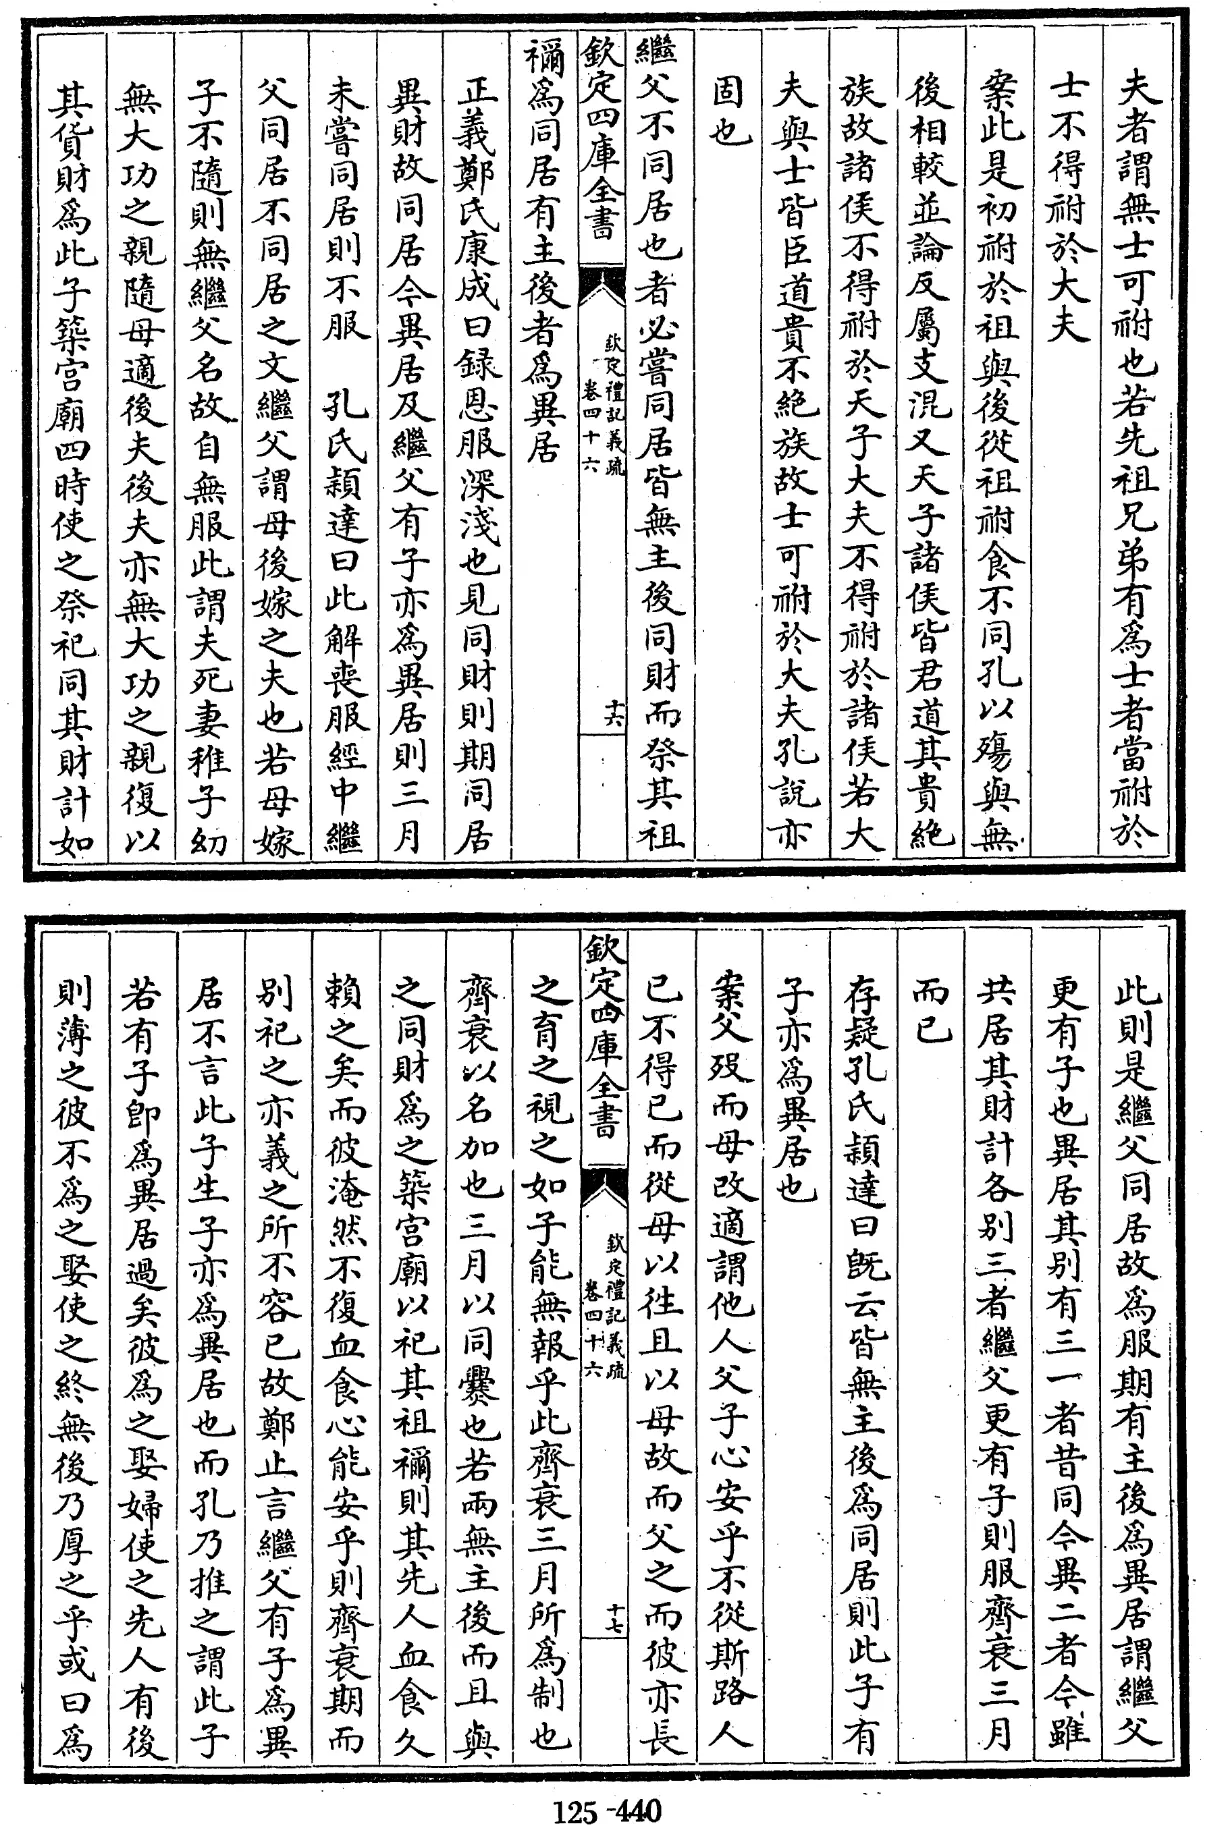 夫者謂無士可祔也若先祖兄弟有為士者當祔於
士不得祔於大夫
案此是初祔於祖與後從祖祔食不同孔以殤與無
後相較並論反屬支混又天子諸侯皆君道其貴絶
族故諸侯不得祔於天子大夫不得祔於諸侯若大
夫與士皆臣道貴不絶族故士可祔於大夫孔說亦
固也
繼父不同居也者必嘗同居皆無主後同財而祭其祖
欽定四庫全書
欽定禮記義疏
卷四十六
十六
禰為同居有主後者為異居
正義鄭氏康成曰録恩服深淺也見同財則期同居
異財故同居今異居及繼父有子亦為異居則三月
未嘗同居則不服 孔氏穎達曰此解喪服經中繼
父同居不同居之文繼父謂母後嫁之夫也若母嫁
子不隨則無繼父名故自無服此謂夫死妻稚子幼
無大功之親隨母適後夫後夫亦無大功之親復以
其貨財為此子築宫廟四時使之祭祀同其財計如
此則是繼父同居故為服期有主後為異居謂繼父
更有子也異居其别有三一者昔同今異二者今雖
共居其財計各别三者繼父更有子則服齊衰三月
而已
存疑孔氏穎達曰既云皆無主後為同居則此子有
子亦為異居也
案父殁而母改適謂他人父子心安乎不從斯路人
已不得已而從母以往且以母故而父之而彼亦長
欽定四庫全書
欽定禮記義疏
卷四十六
十七
之育之視之如子能無報乎此齊衰三月所為制也
齊衰以名加也三月以同爨也若兩無主後而且與
之同財為之築宫廟以祀其祖禰則其先人血食久
賴之矣而彼淹然不復血食心能安乎則齊衰期而
别祀之亦義之所不容已故鄭止言繼父有子為異
居不言此子生子亦為異居也而孔乃推之謂此子
若有子即為異居過矣彼為之娶婦使之先人有後
則薄之彼不為之娶使之終無後乃厚之乎或曰為
125-440